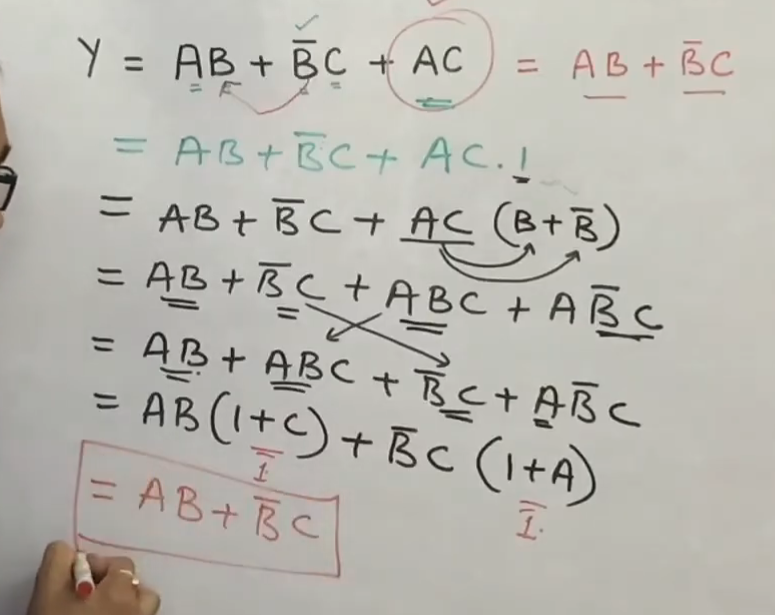 Y = AB + B̅C + AC = AB + B̅C
= AB + B̅C + AC.1
= AB + B̅C + AC (B + B̅)
= AB + B̅C + ABC + AB̅C
= AB + ABC + B̅C + AB̅C
= AB(1+C) + B̅C (1+A)
1 1.
= AB + B̅C